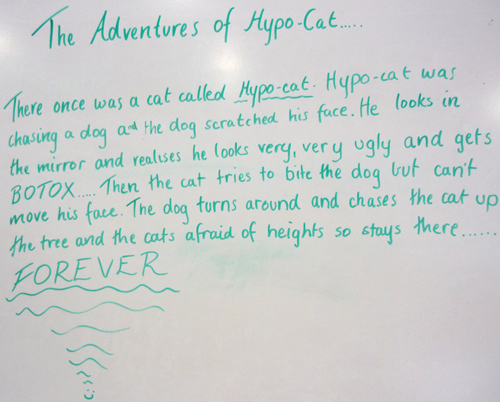 The Adventures of Hypo-Cat.....
There once was a cat called Hypo-cat. Hypo-cat was
chasing a dog and the dog scratched his face. He looks in
the mirror and realises he looks very, very ugly and gets
BOTOX..... Then the cat tries to bite the dog but can't
move his face. The dog turns around and chases the cat up
the tree and the cats afraid of heights so stays there......
FOREVER